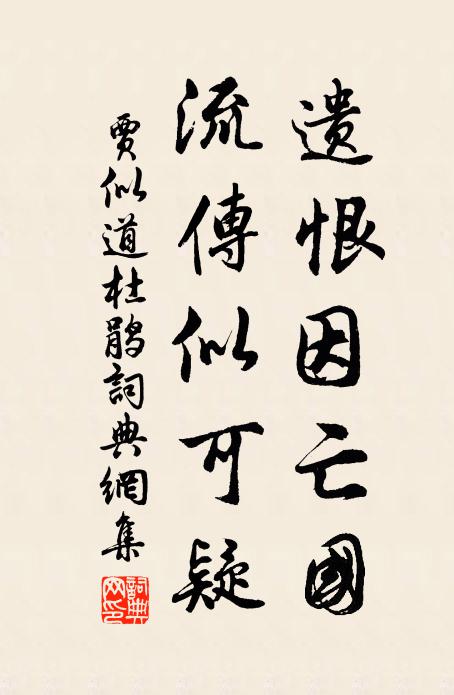 遺恨因亡國
流傳似可疑
賈似道杜鵑詞典網集
詞典網印